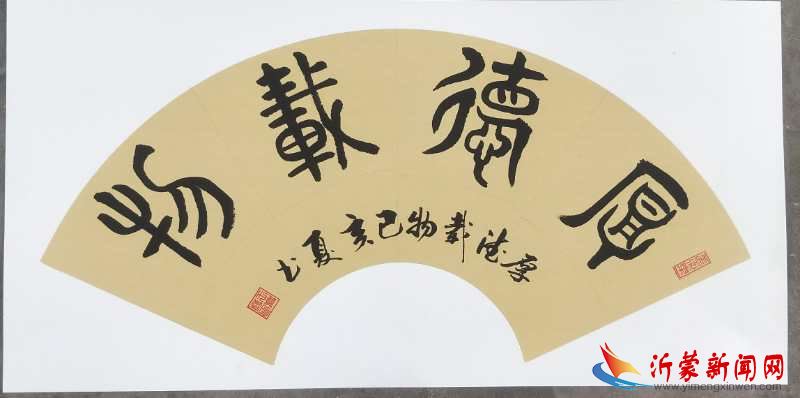 厚德載物
厚德载物己亥夏书
沂蒙新闻网
www.yimengxinwen.com